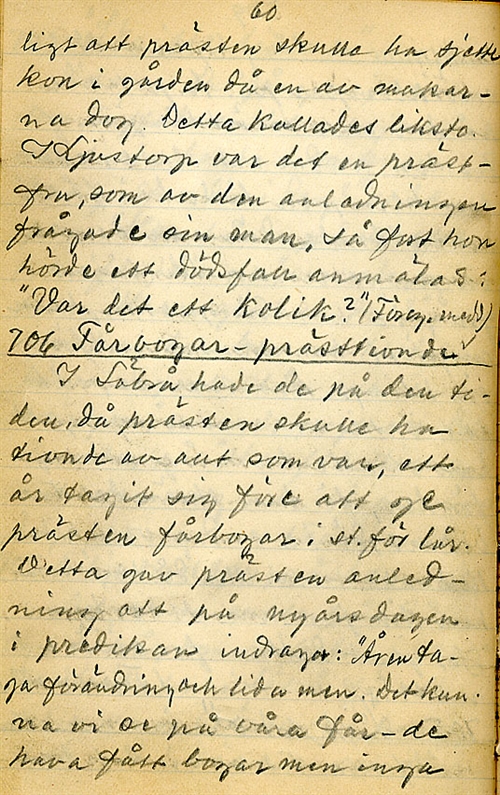 60
ligt att prästen skulle ha sjette
kon i gården då en av makar-
na dog. Detta kallades liksto.
I Ljustorp var det en präst-
fru, som av den anledningen
frågade sin man, så fort hon
hörde ett dödsfall anmälas:
"Var det ett kolik?" (Föreg. medd)
706 Fårbogar - prästtionde.
I Säbrå hade de på den ti-
den, då prästen skulle ha
tionde av allt som var, ett
år tagit sig före att ge
prästen fårbogar i st. för lår.
Detta gav prästen anled-
ning att på nyårsdagen
i predikan indraga: "Åren ta-
ga förändring och lida men. Det kun-
na vi se på våra får - de
hava fått bogar men inga